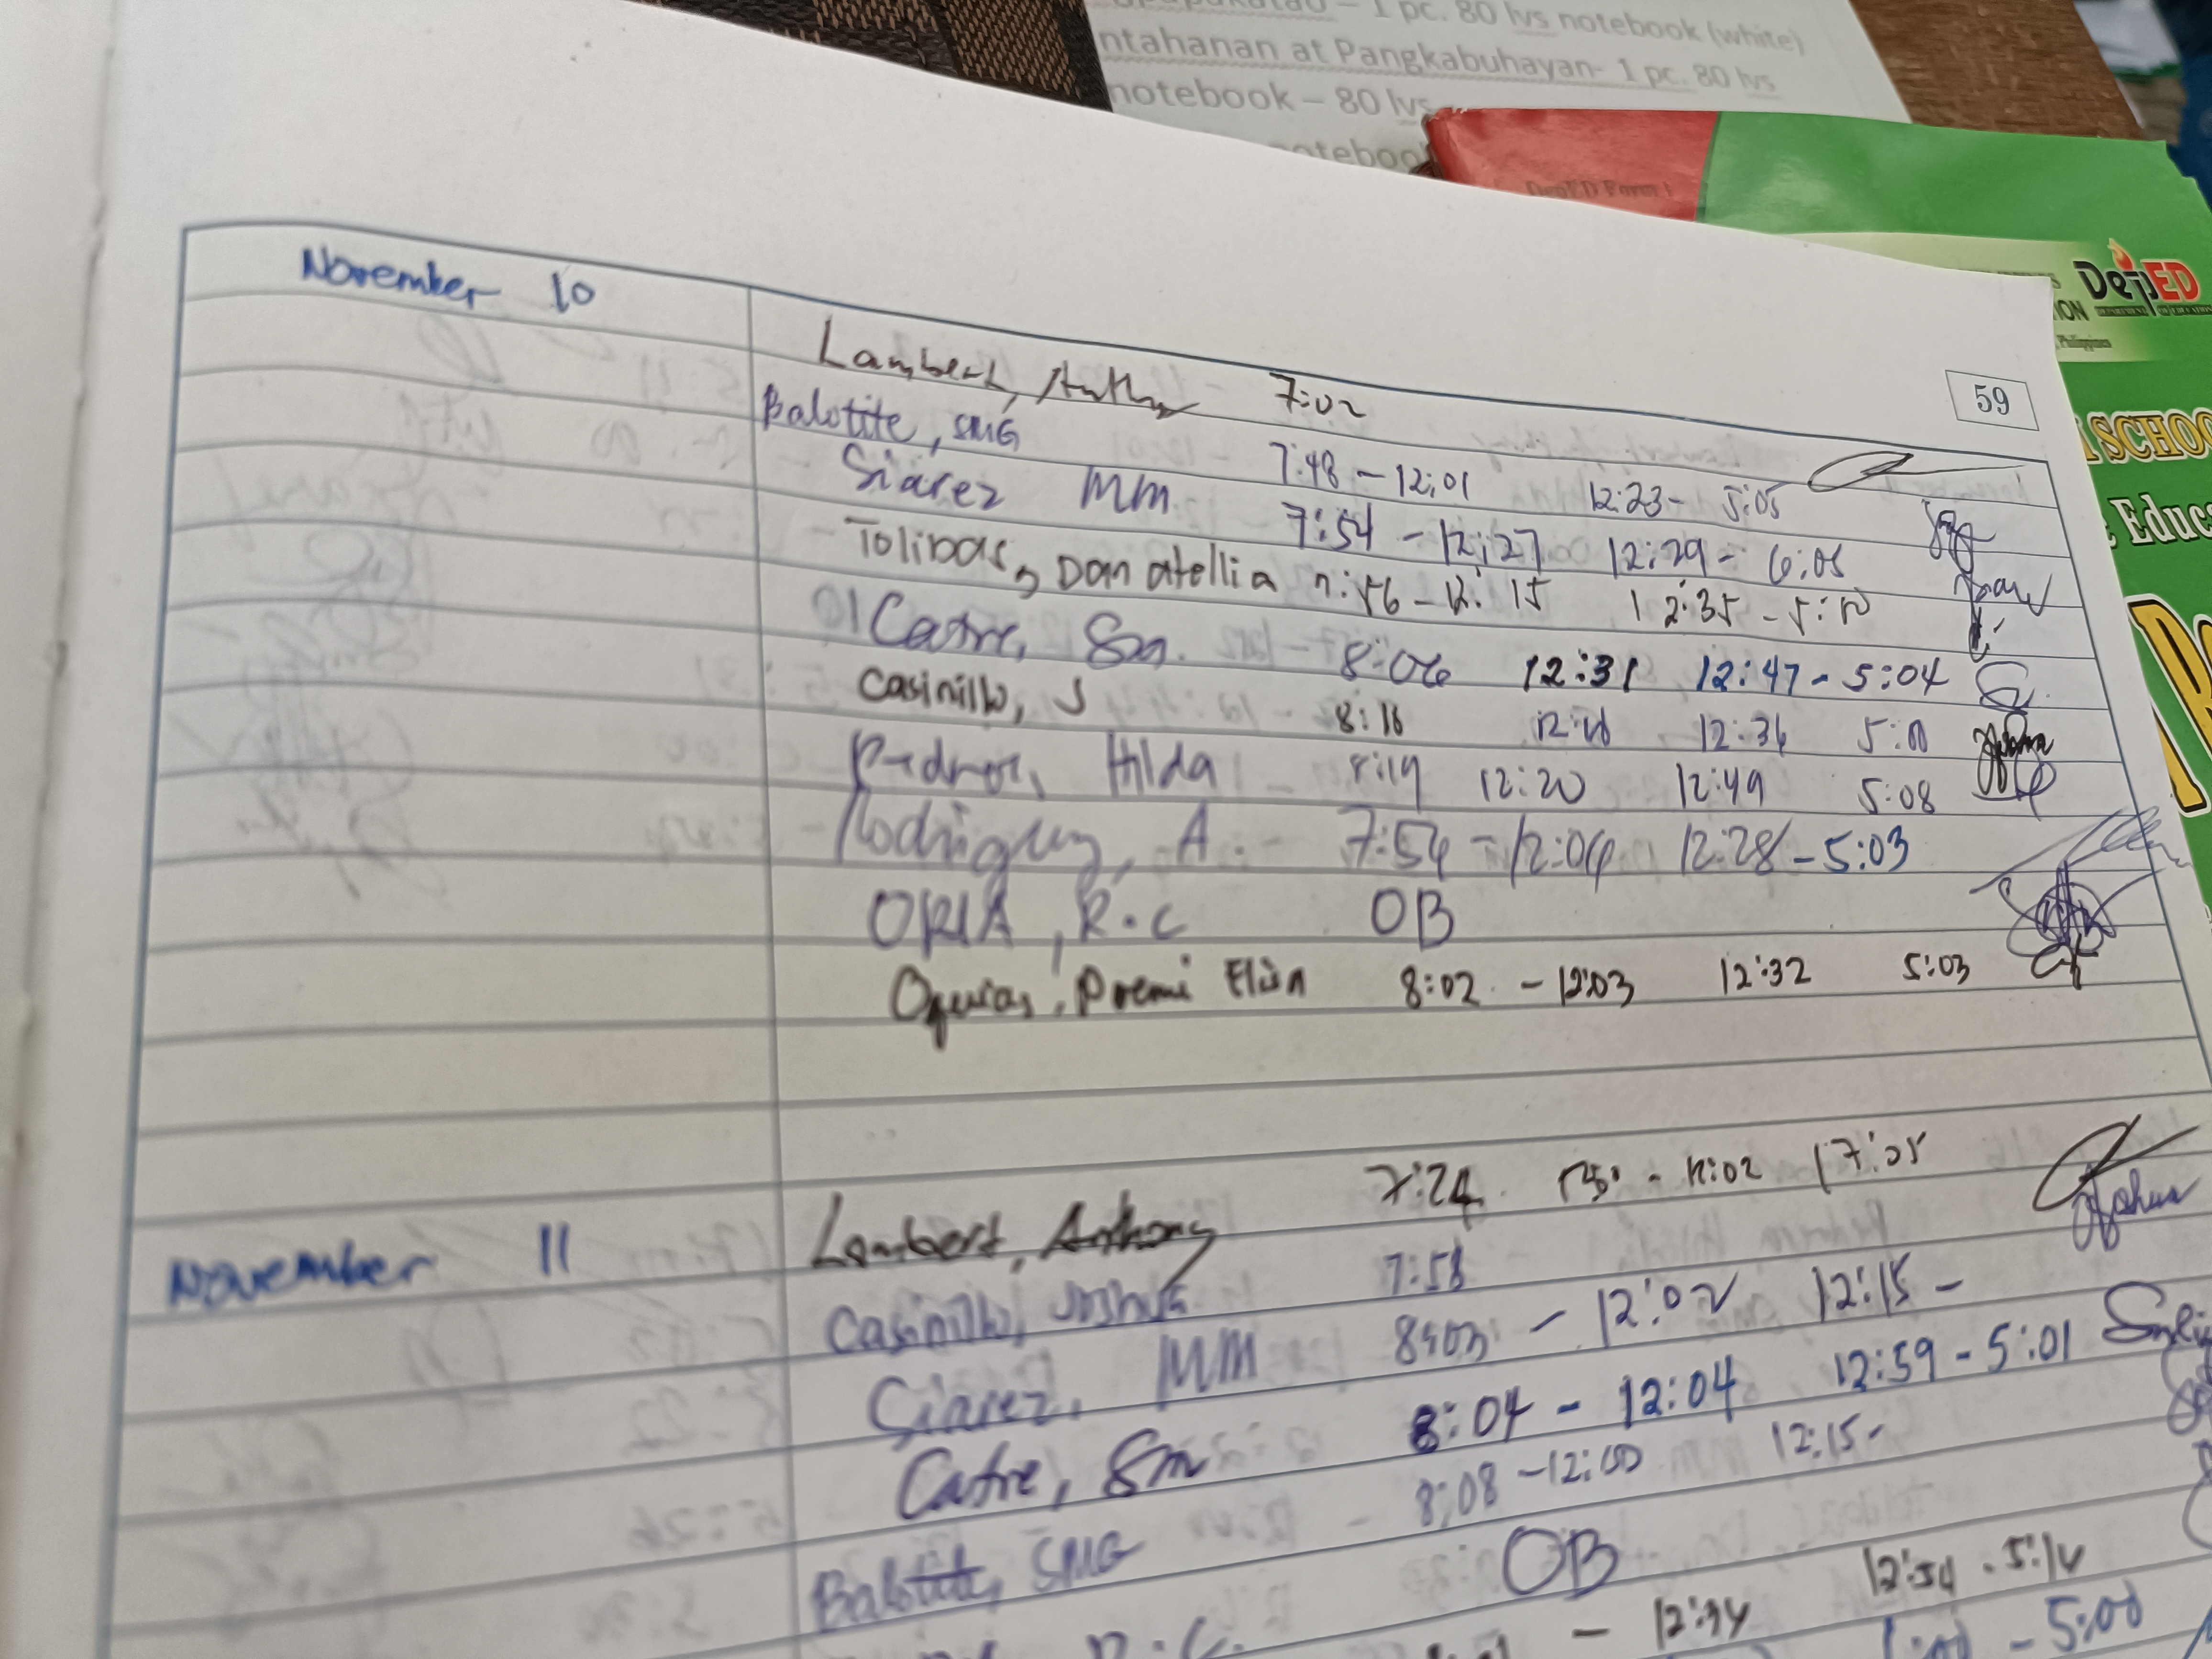 1 pc. 80 lvs notebook (white)
ntahanan at Pangkabuhayan- 1 pc. 80 lvs
notebook – 80 lvs
DepED Form 1
DepED
ION
Philippines
59
SCHOO
Educ
November 10
Lambert, Anthony 7:02
Balotite, SMG 7:48 - 12:01 12:23 - 5:05
Siarez MM 7:54 - 12:27 12:29 - 6:05
Tolibas, Danatellia 7:56 - 12:15 12:35 - 5:10
Catre, Sm. 8:06 12:31 12:47 - 5:04
Casinillo, J 8:18 12:36
Hilda 8:19 12:20 12:49 5:08
Rodriguez, A. 7:54 - 12:04 12:28 - 5:03
ORIA, R.C OB
8:02 - 12:03 12:32 5:03
November 11
Lambert, Anthony 7:24 12:02 17:05
Casinillo, Joshua 7:58
Siarez, MM 8:03 - 12:02 12:15 -
Catre, Sm 8:04 - 12:04 12:59 - 5:01
Balotite, SMG 8:08 - 12:00 12:15 -
OB
- 12:34 12:54 - 5:14
1:00 - 5:00